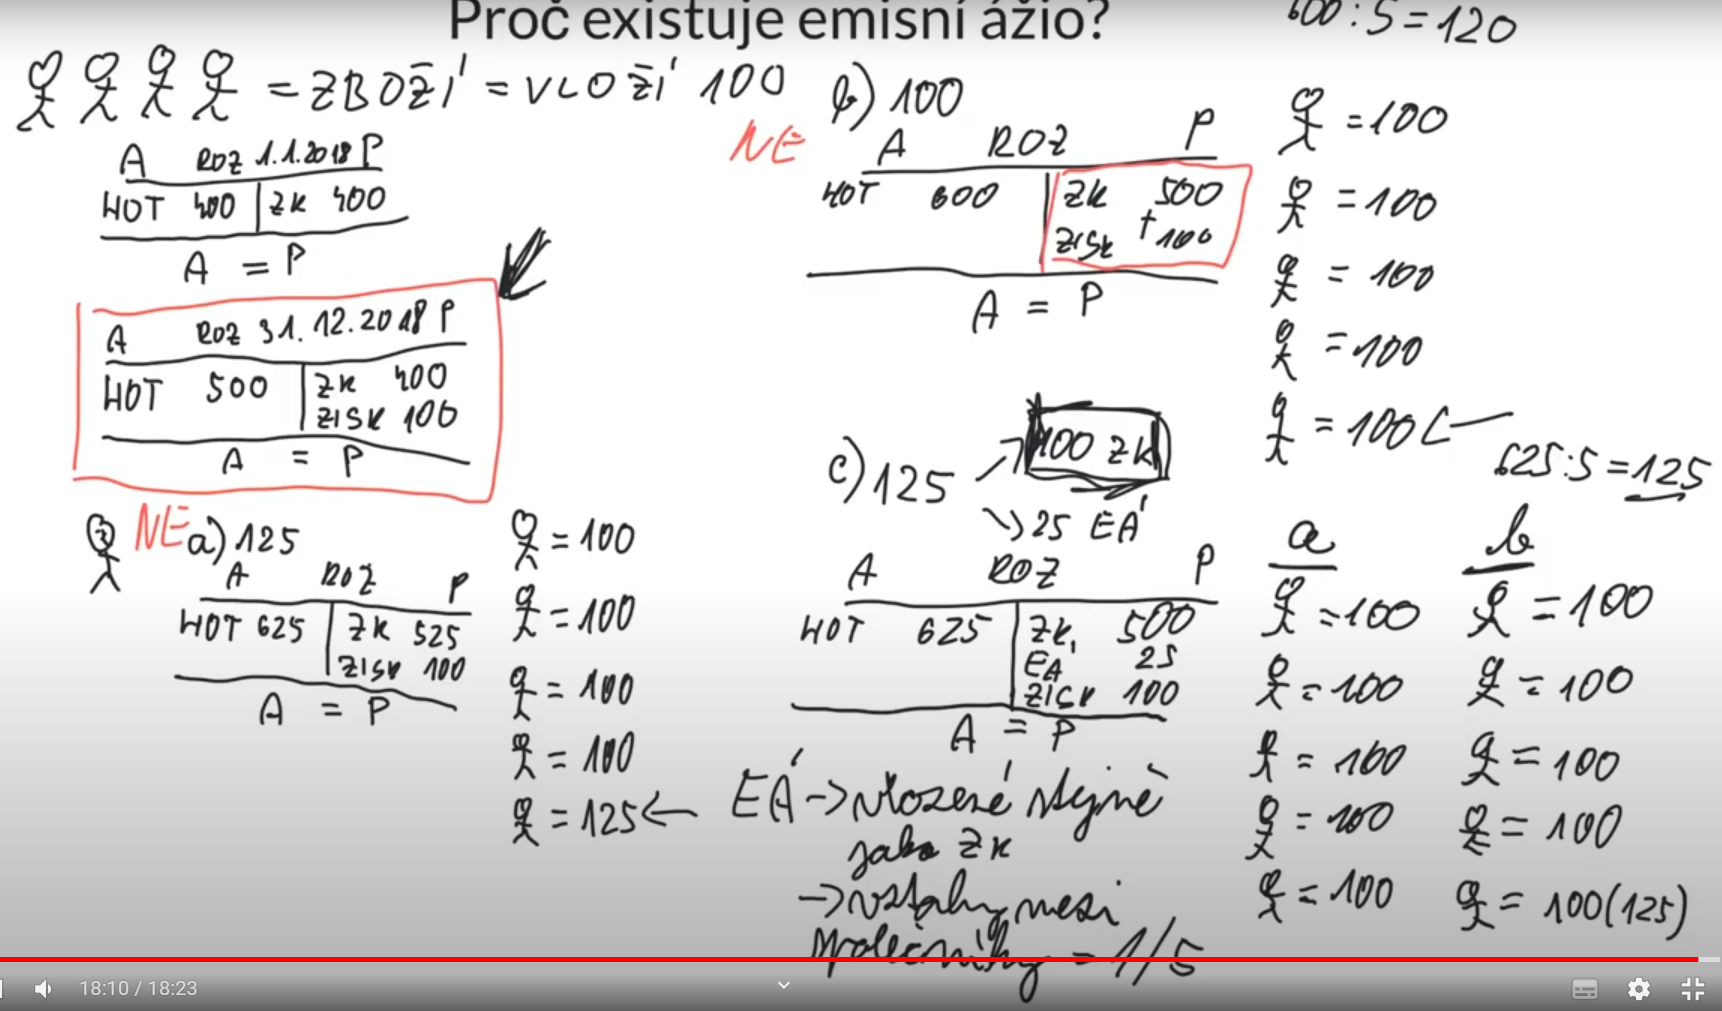 Proč existuje emisní ážio?
600:5=120
= ZBOŽÍ = VLOŽÍ 100
A ROZ 1.1.2018 P
HOT 400 ZK 400
A = P
A ROZ 31.12.2018 P
HOT 500 ZK 400
ZISK 100
A = P
NE a) 125
A ROZ P
HOT 625 ZK 525
ZISK 100
A = P
= 100
= 100
= 100
= 100
= 125
b) 100
NE
A ROZ P
HOT 600 ZK 500
ZISK + 100
A = P
= 100
= 100
= 100
= 100
= 100
625:5=125
c) 125
100 ZK
25 EÁ
A ROZ P
HOT 625 ZK 500
EA 25
ZISK 100
A = P
EÁ -> vložené stejně
jako ZK
-> vztahy mezi
společníky = 1/5
a
= 100
= 100
= 100
= 100
= 100
b
= 100
= 100
= 100
= 100
= 100(125)
18:10 / 18:23